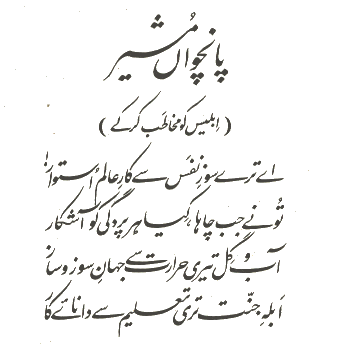 پانچواں مشیر
( ابلیس کو مخاطب کرکے )
اے ترے سوزِ نفَس سے کارِ عالم اُستوار!
تُو نے جب چاہا، کِیا ہر پردگی کو آشکار
آب و گِل تیری حرارت سے جہانِ سوز و ساز
اَبلہِ جنّت تری تعلیم سے دانائے کار